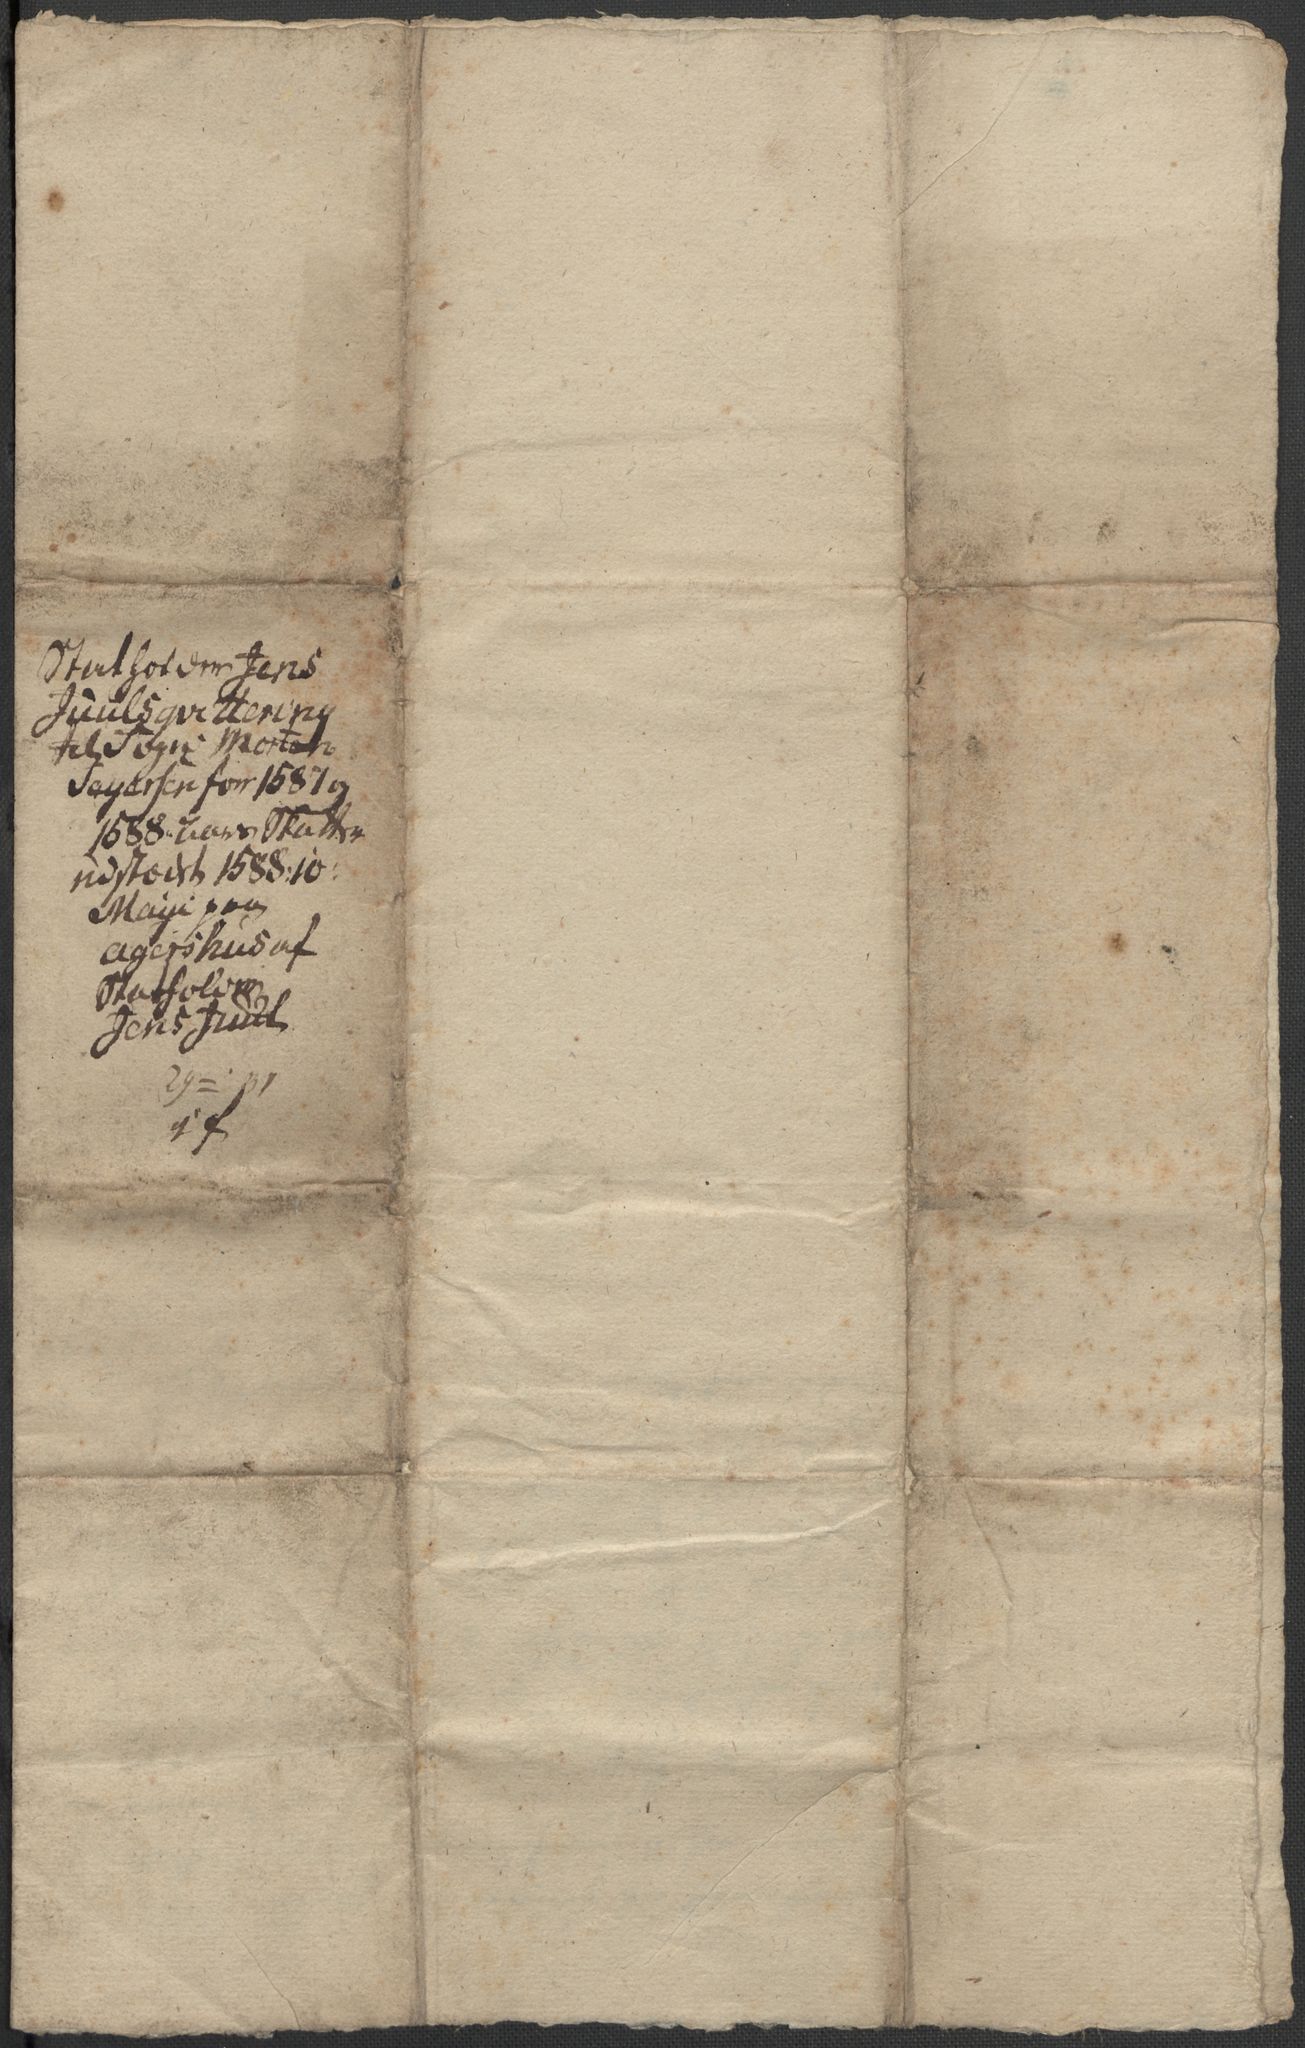 Statholder Jens
Juuls qvittering
til Fogn: Morten
Seyersen for 1587 og
1588: aars Skatter
udstædt 1588: 10:
Maji paa
agershus af
Statholder
Jens Juul